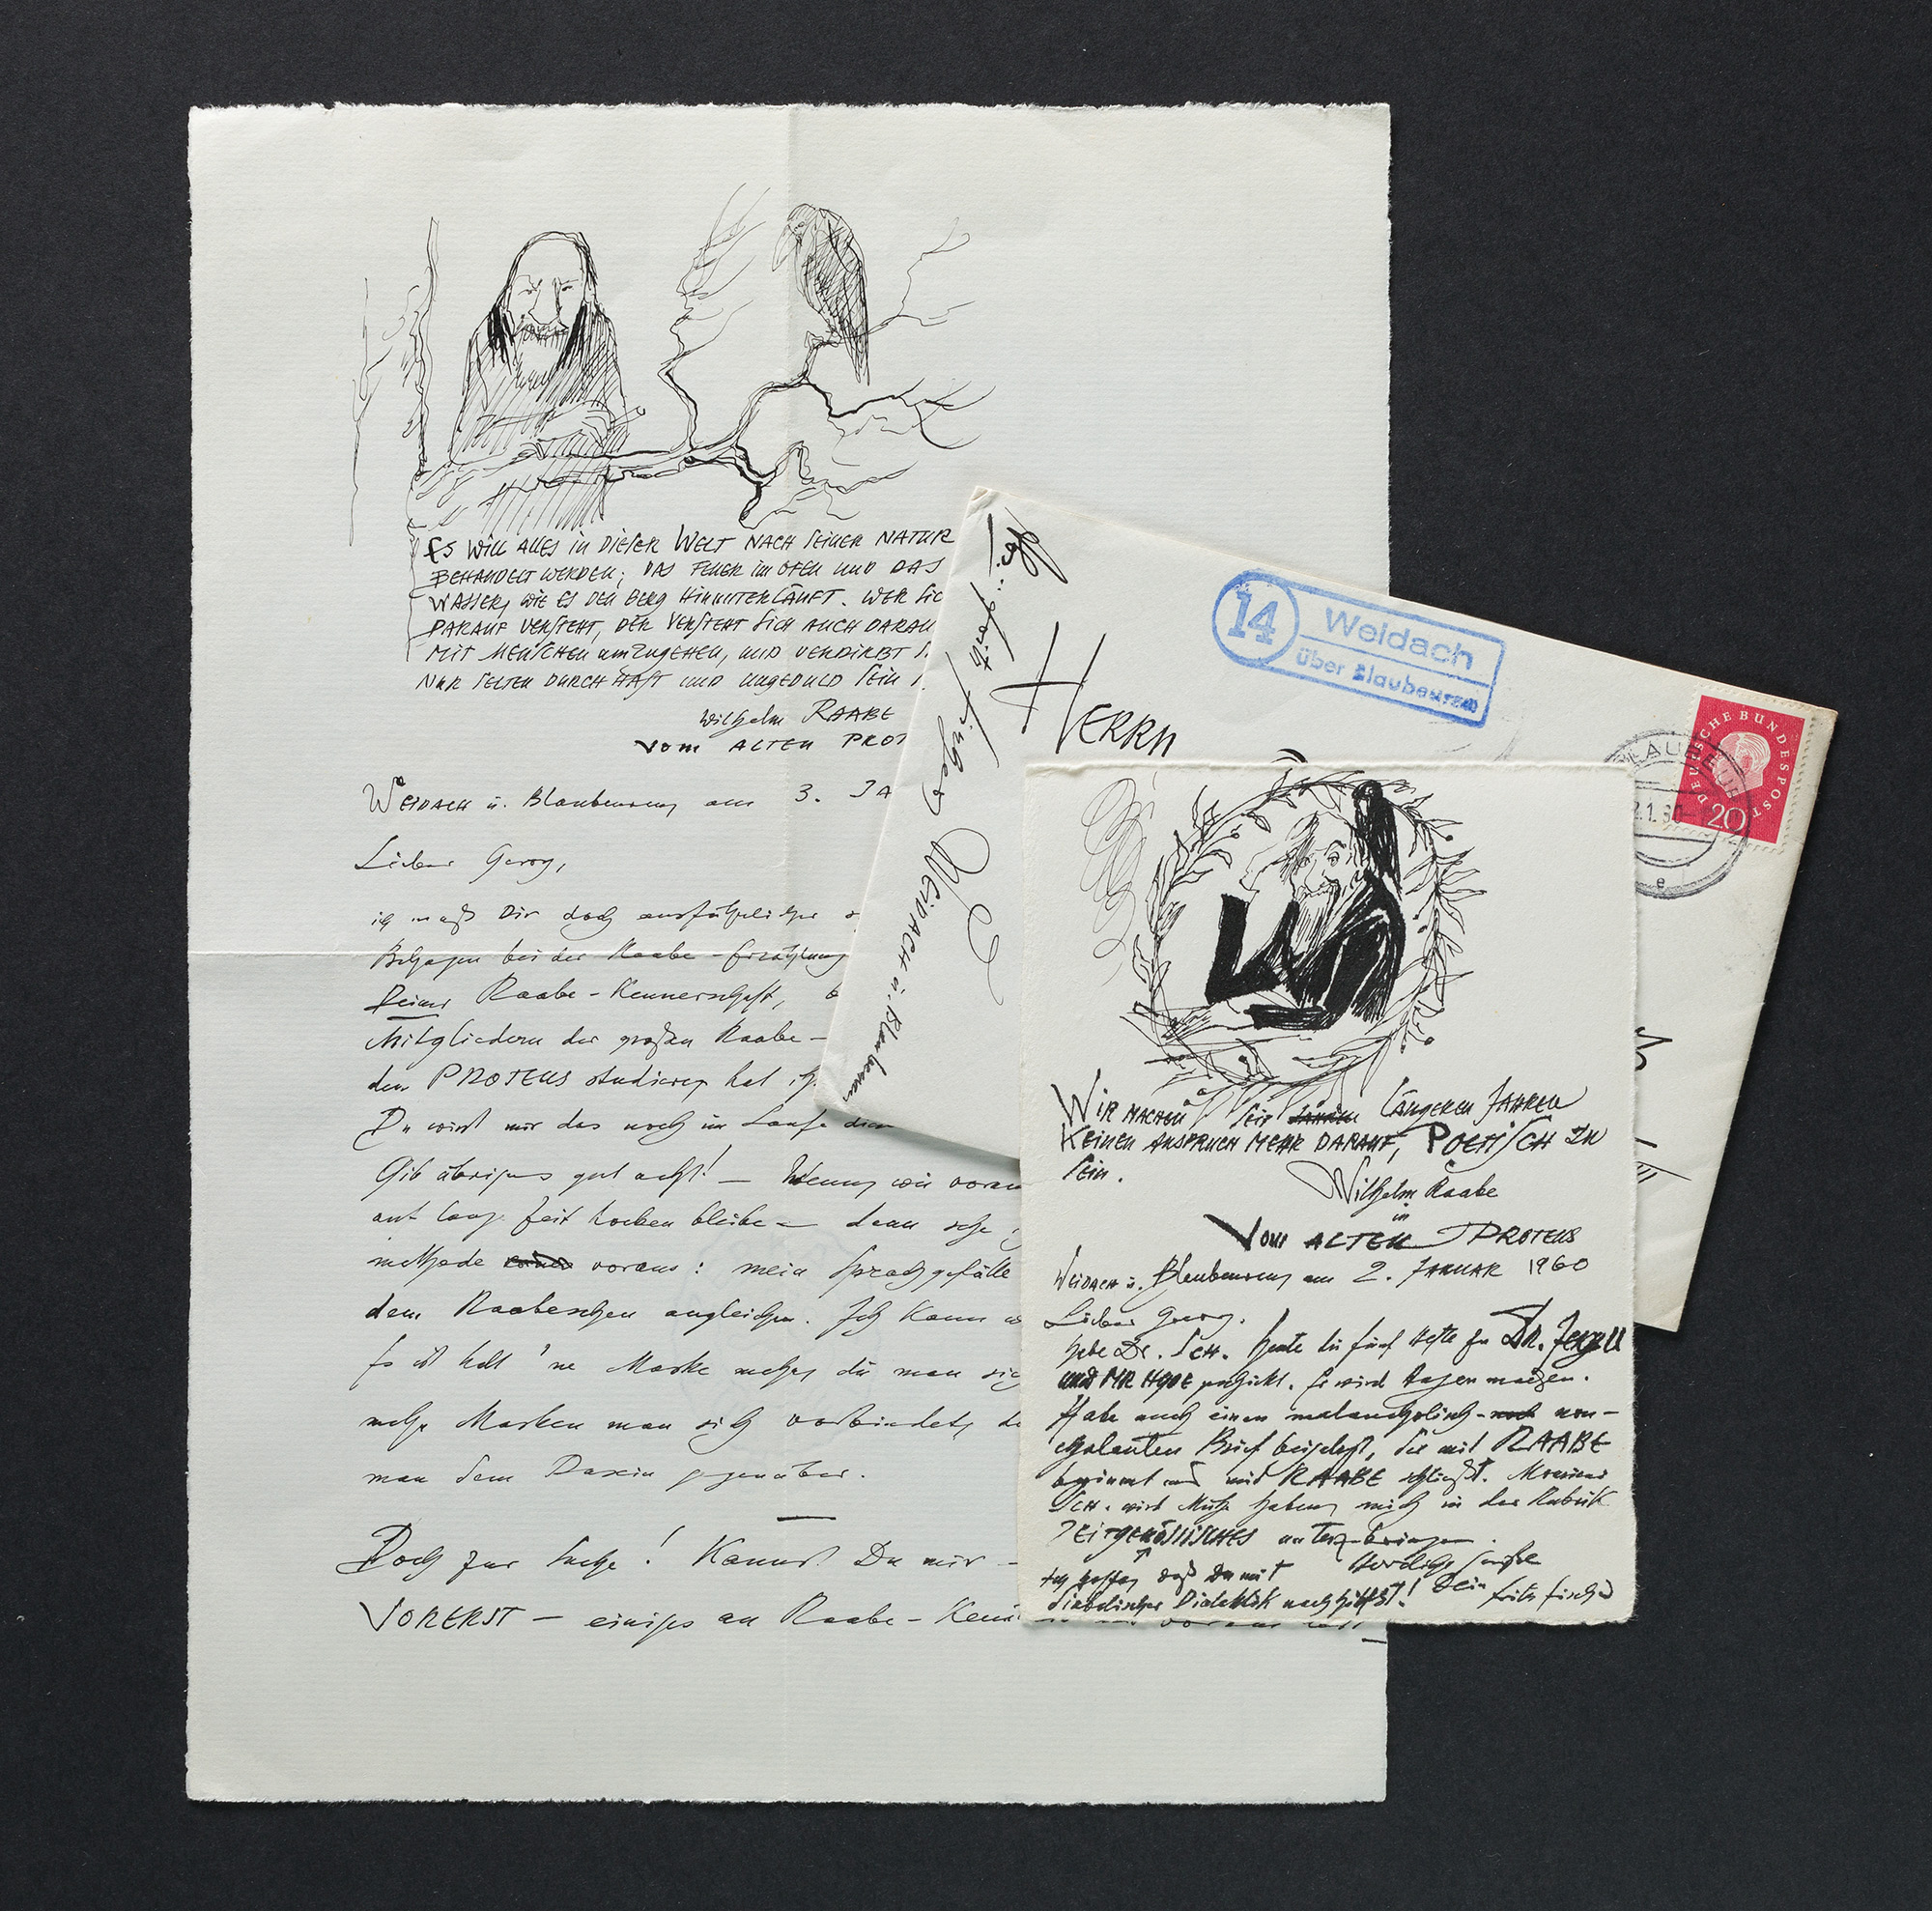 ES WILL ALLES IN DIESER WELT NACH SEINER NATUR
BEHANDELT WERDEN; DAS FEUER IM OFEN UND DAS
WASSER, WIE ES DEN BERG HINUNTERLÄUFT. WER SIC
DARAUF VERSTEHT, DER VERSTEHT SICH AUCH DARAU
MIT MENSCHEN UMZUGEHEN, UND VERDIRBT S
NUR SELTEN DURCH HAST UND UNGEDULD SEIN
Wilhelm RAABE
Vom ALTEN PROT
WEIDACH ü. Blaubeuren am 3. JA
Lieber Georg,
ich muß Dir doch ausführlicher
Behagen bei der Raabe-Erzählung
Deiner Raabe-Kennerschaft,
Mitgliedern der großen Raabe-
den PROTEUS studieren hat
Du wirst mir das noch im Laufe
Gib übrigens gut acht! — Wenn wir voran
auf lang Zeit hocken bleibe — denn sehe
methode voraus: mein Sprachgefälle
dem Raabeschen angleichen. Ich kann
Es ist halt 'ne Maske mehr, die man sich
mehr Masken man sich vorbindet,
man dem Dasein gegenüber.
Doch zur Sache! Kannst Du mir —
VORERST — einiges an Raabe-
Abs.: Fritz Fischer
WEIDACH ü. Blaubeuren
HERRN
14 Weidach
über Blaubeuren
DEUTSCHE BUNDESPOST
20
BLAUBE
2.1.60
e
WIR MACHEN SEIT LÄNGEREN JAHREN
KEINEN ANSPRUCH MEHR DARAUF, POETISCH ZU
SEIN.
Wilhelm Raabe
in
Vom ALTEN PROTEUS
WEIDACH ü. Blaubeuren am 2. JANUAR 1960
Lieber Georg.
habe Dr. SCH. heute die fünf Hefte zu DR. Jekyll
und MR HYDE geschickt. Er wird Augen machen.
Habe auch einen melancholisch- non-
chalanten Brief beigelegt, der mit RAABE
beginnt und mit RAABE schließt. Monsieur
SCH. wird Mühe haben, mich in der Rubrik
ZEITGENÖSSISCHES unterzubringen.
Ich hoffe, daß Du mit Herzliche Grüße
diabolischer Dialektik nachhilfst! Dein Fritz Fischer